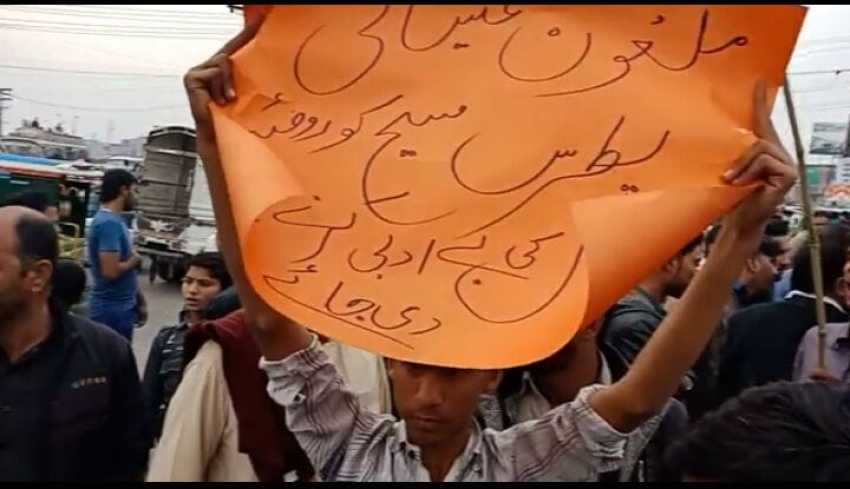 ملعون عیسائی
پطرس مسیح کو روضہ
کی بے ادبی
دی جائے